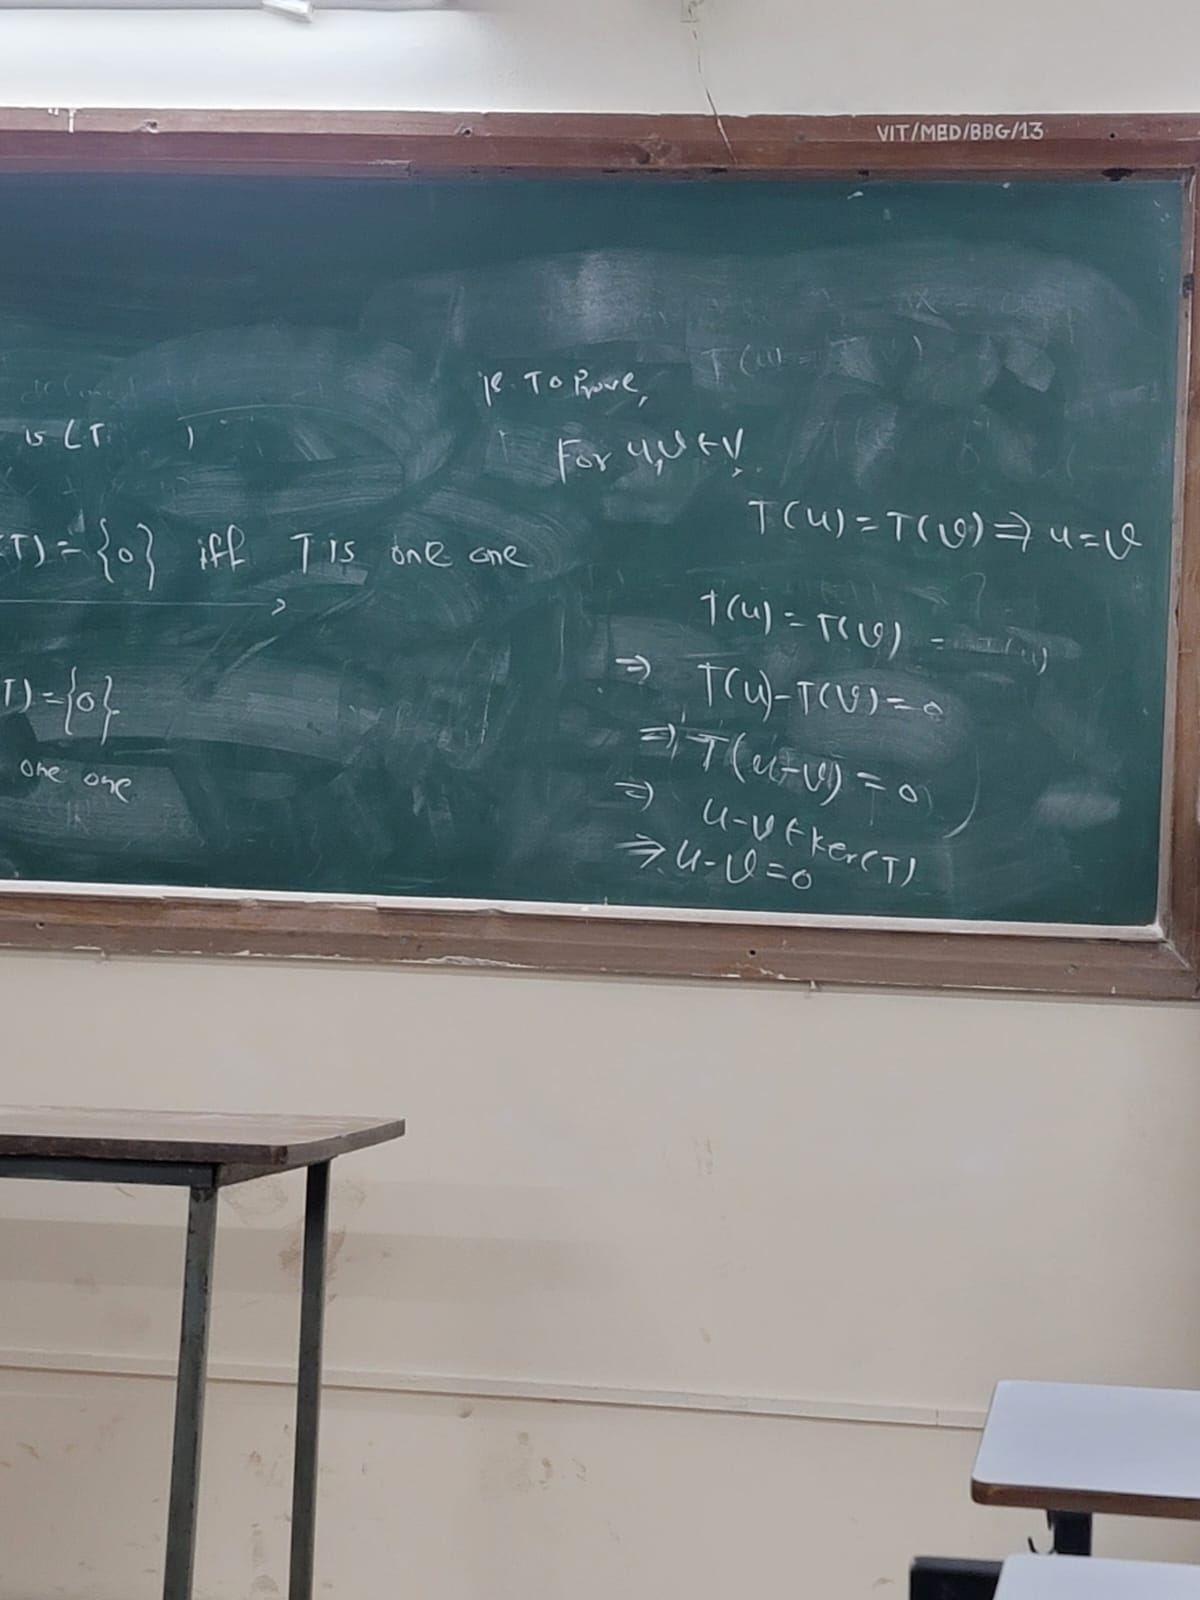 VIT/MED/BBG/13
is (T )
(T) = {0} iff T is one one
T) = {0}
one one
ie. To Prove,
For u,v ∈ V,
T(u) = T(v) ⇒ u = v
T(u) = T(v)
⇒ T(u) - T(v) = 0
⇒ T(u-v) = 0
⇒ u-v ∈ ker(T)
⇒ u-v = 0